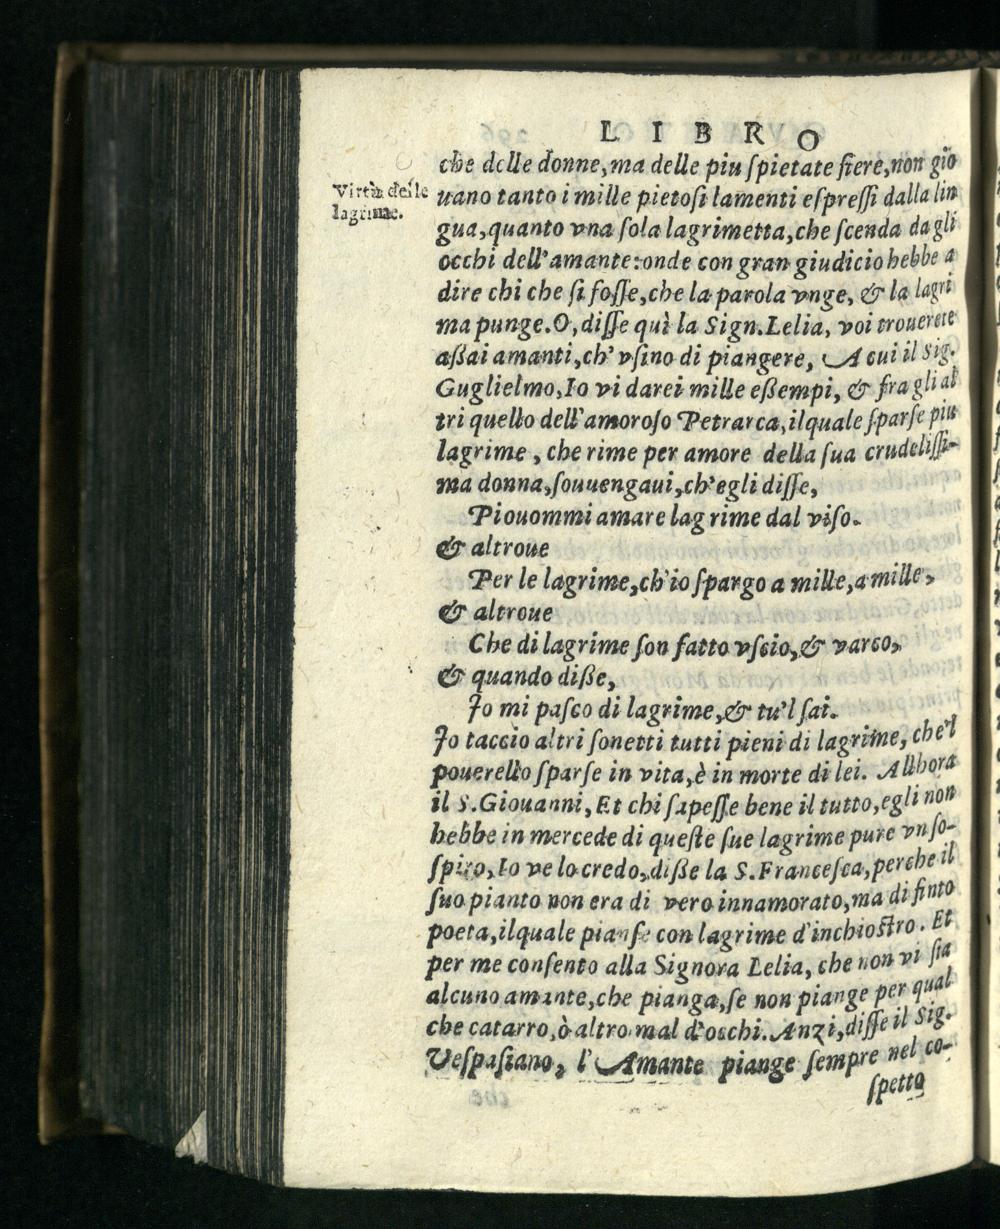 LIBRO
che delle donne, ma delle piu ſpietate fiere, non gio
Virtù delle
lagrime.
uano tanto i mille pietoſi lamenti eſpreſſi dalla lin
gua, quanto vna ſola lagrimetta, che ſcenda dagli
occhi dell'amante: onde con gran giudicio hebbe a
dire chi che ſi foſſe, che la parola vnge, & la lagri
ma punge. O, diſſe quì la Sign. Lelia, voi trouerete
aßai amanti, ch'vſino di piangere, A cui il Sig.
Guglielmo, Io vi darei mille eßempi, & fra gli al
tri quello dell'amoroſo Petrarca, ilquale ſparſe piu
lagrime, che rime per amore della ſua crudeliſſi-
ma donna, ſouuengaui, ch'egli diſſe,
Piouommi amare lagrime dal viſo.
& altroue
Per le lagrime, ch'io ſpargo a mille, a mille,
& altroue
Che di lagrime ſon fatto vſcio, & varco,
& quando diße,
Io mi paſco di lagrime, & tu'l ſai.
Io taccio altri ſonetti tutti pieni di lagrime, che'l
pouerello ſparſe in vita, è in morte di lei. Allhora
il S. Giouanni, Et chi ſapeſſe bene il tutto, egli non
hebbe in mercede di queſte ſue lagrime pure vn ſo-
ſpiro, Io ve lo credo, diße la S. Franceſca, perche il
ſuo pianto non era di vero innamorato, ma di finto
poeta, ilquale pianſe con lagrime d'inchioſtro. Et
per me conſento alla Signora Lelia, che non vi ſia
alcuno amante, che pianga, ſe non piange per qual
che catarro, ò altro mal d'occhi. Anzi, diſſe il Sig.
Veſpaſiano, l'Amante piange ſempre nel co-
ſpetto